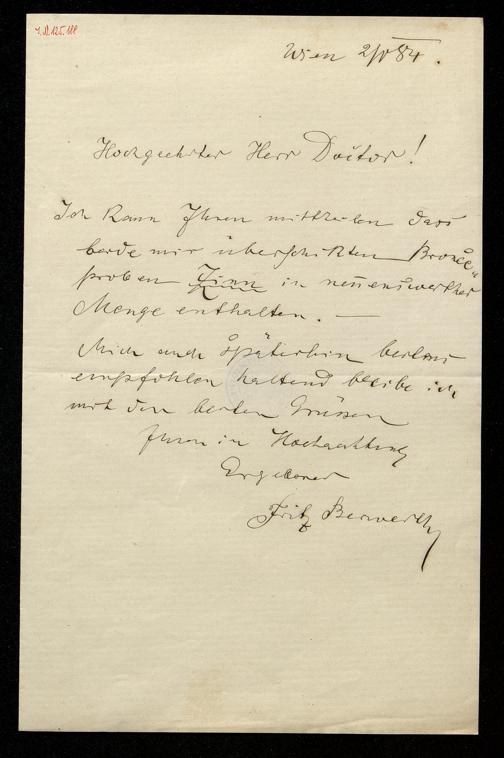 I.N. 125.188
Wien 2/V 84.
Hochgeehrter Herr Doctor!
Ich kann Ihnen mittheilen dass
beide mir überschikten Bronce„
proben Zinn in nennenswerther
Menge enthalten. —
Mich auch späterhin bestens
empfohlen haltend bleibe ich
mit den besten Grüssen
Ihnen in Hochachtung
Ergebener
Fritz Berwerth